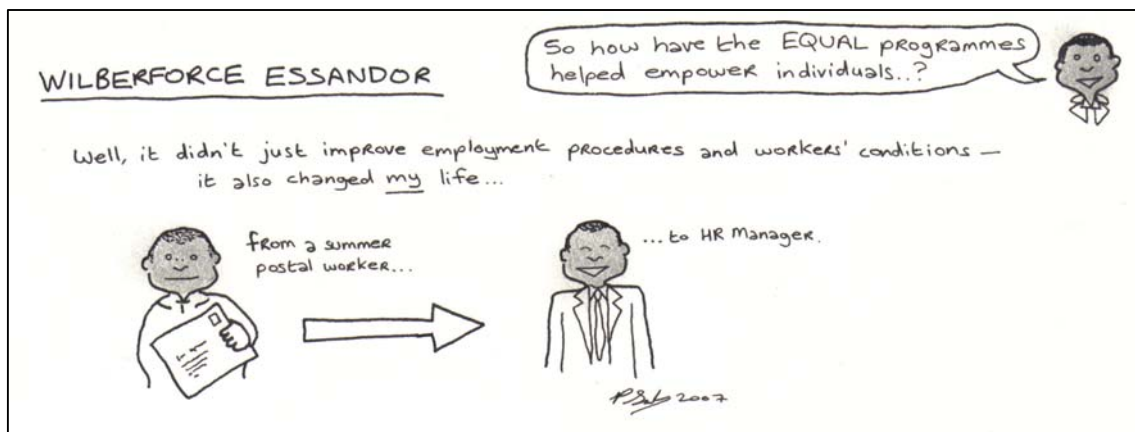 WILBERFORCE ESSANDOR
So how have the EQUAL programmes
helped empower individuals..?
Well, it didn't just improve employment procedures and workers' conditions —
it also changed my life...
from a summer
postal worker...
...to HR Manager.
2007